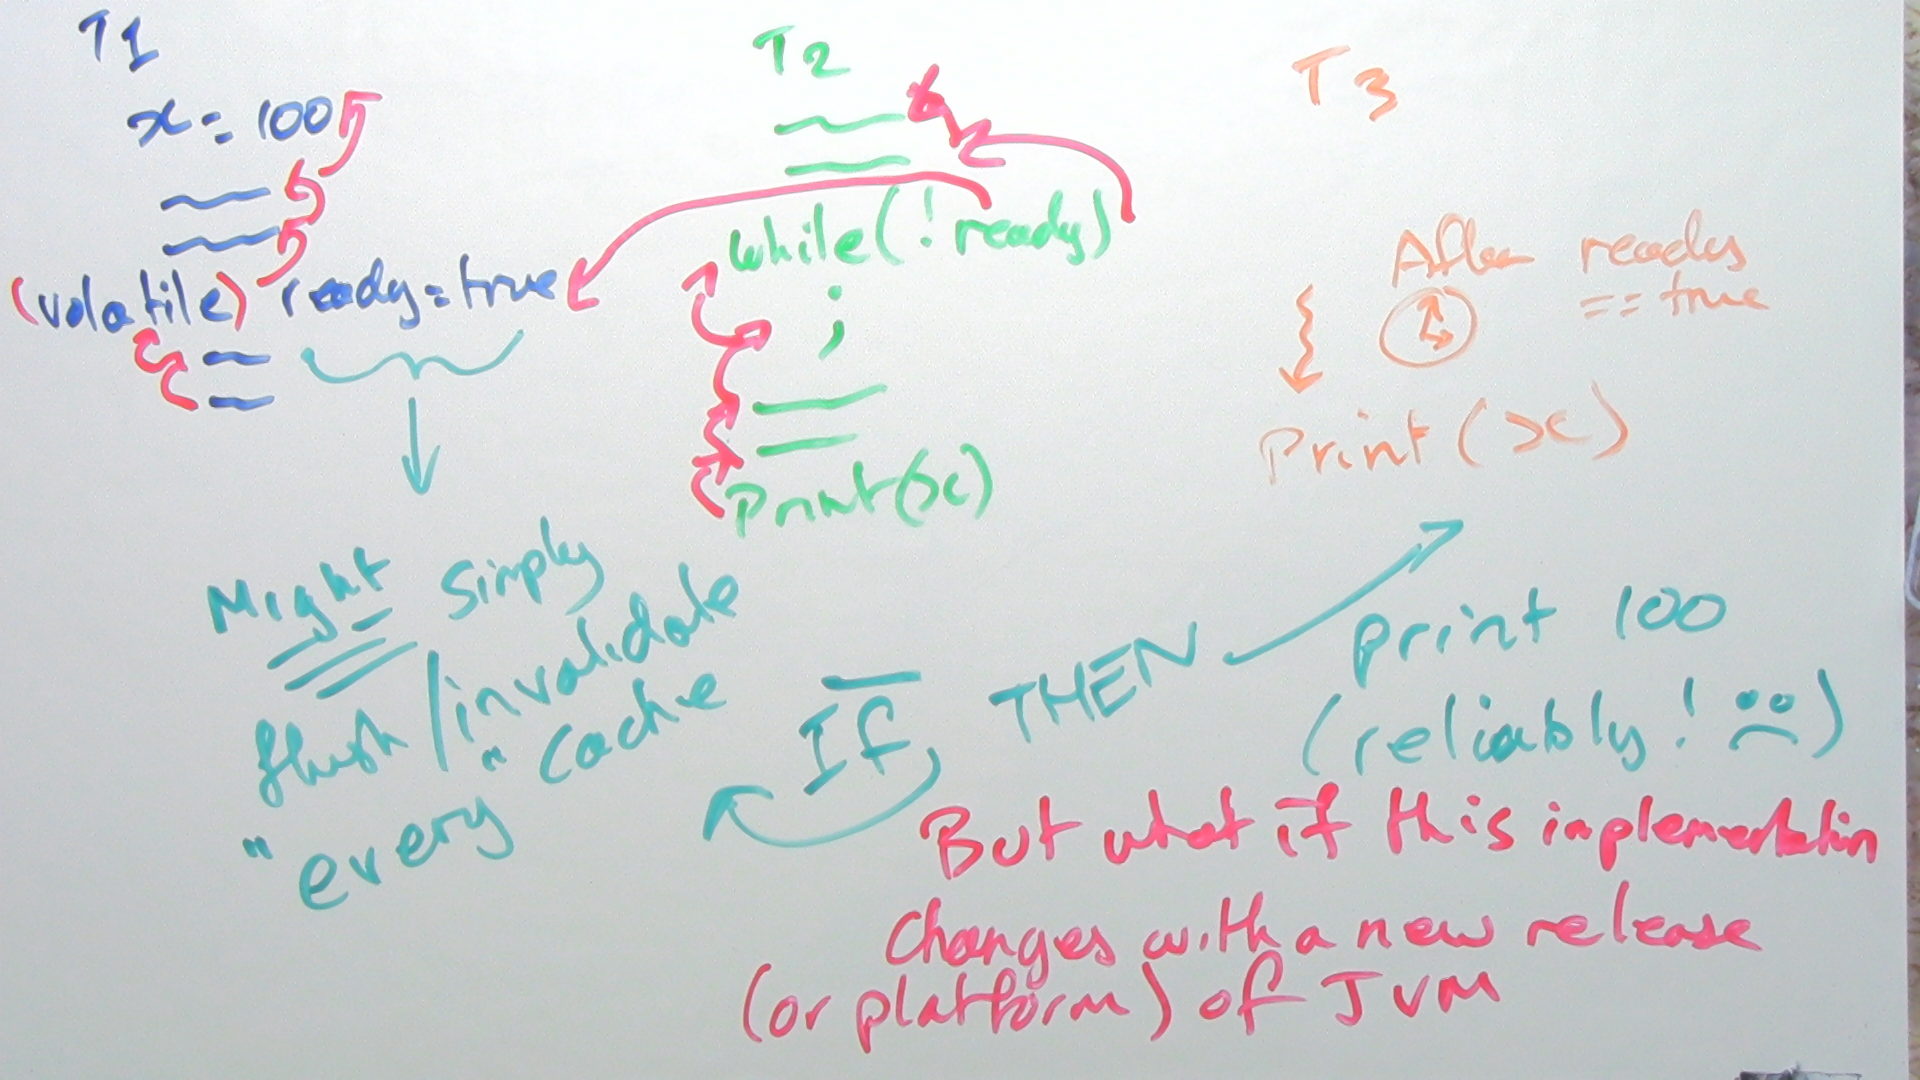 T1
x = 100
(volatile) ready = true
T2
while(! ready)
;
Print(x)
T3
After ready
== true
Print(x)
Might simply
flush/invalidate
"every" cache
If THEN
print 100
(reliably! )
But what if this implementation
changes with a new release
(or platform) of JVM